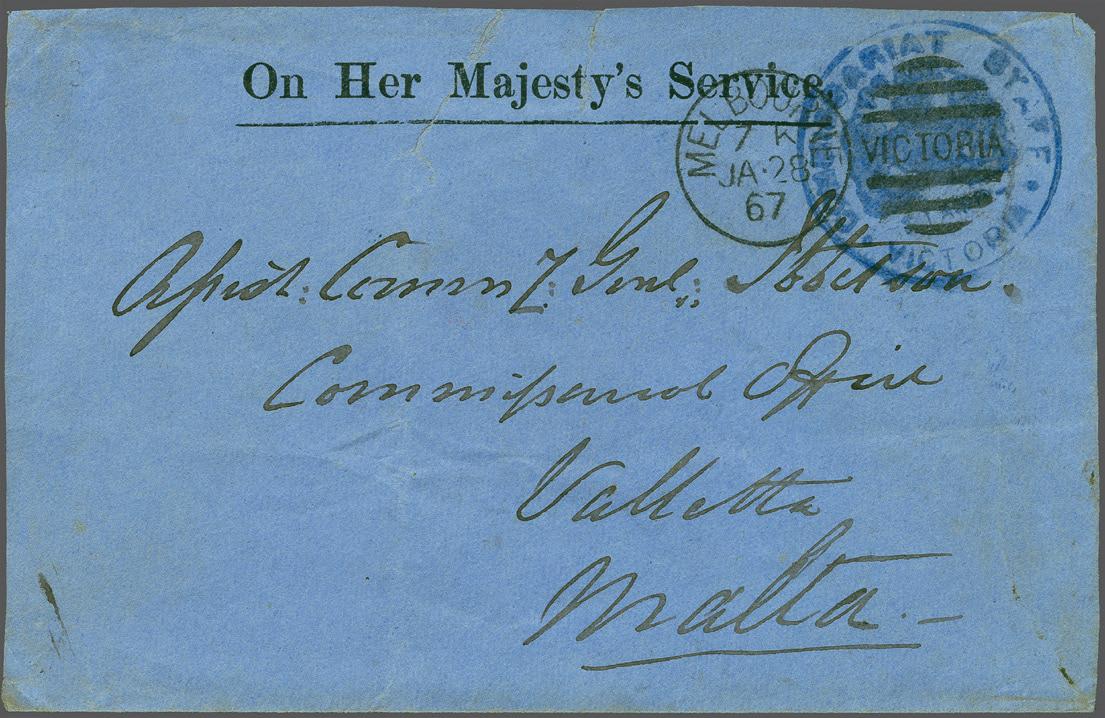 On Her Majesty's Service.
MELBOURNE
7 K
JA·28
67
VICTORIA
COMMISSARIAT STAFF
VICTORIA
Assist: Comm.y: Genl.:
Commissariat Office
Valletta
Malta.—